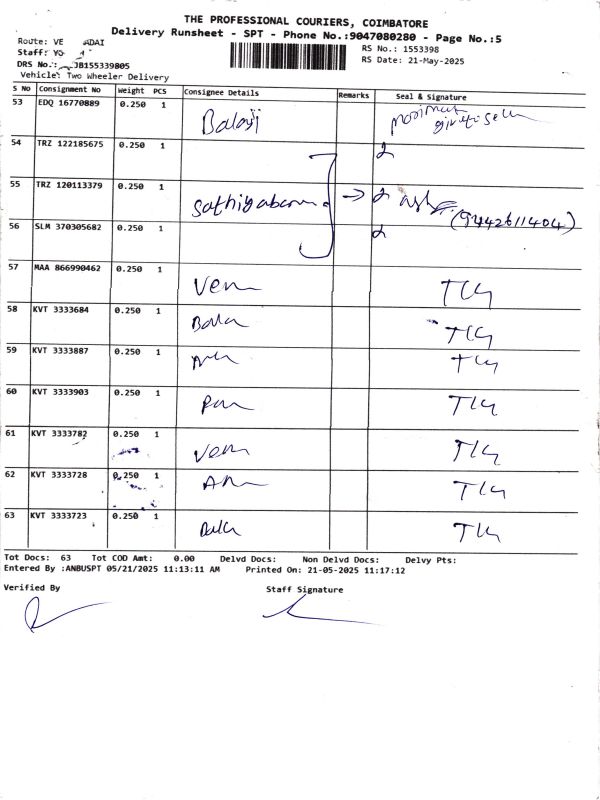 THE PROFESSIONAL COURIERS, COIMBATORE
Delivery Runsheet - SPT - Phone No.:9047080280 - Page No.:5
Route: VE ADAI
RS No.: 1553398
Staff: YO
RS Date: 21-May-2025
DRS No.: JB155339805
Vehicle: Two Wheeler Delivery
S No Consignment No Weight PCS Consignee Details Remarks Seal & Signature
53 EDQ 16770889 0.250 1 Balaji
54 TRZ 122185675 0.250 1
55 TRZ 120113379 0.250 1 (9442611404)
56 SLM 370305682 0.250 1
57 MAA 866990462 0.250 1 TLG
58 KVT 3333684 0.250 1 TLG
59 KVT 3333887 0.250 1 TLG
60 KVT 3333903 0.250 1 TLG
61 KVT 3333782 0.250 1 TLG
62 KVT 3333728 0.250 1 TLG
63 KVT 3333723 0.250 1 TLG
Tot Docs: 63 Tot COD Amt: 0.00 Delvd Docs: Non Delvd Docs: Delvy Pts:
Entered By :ANBUSPT 05/21/2025 11:13:11 AM Printed On: 21-05-2025 11:17:12
Verified By Staff Signature